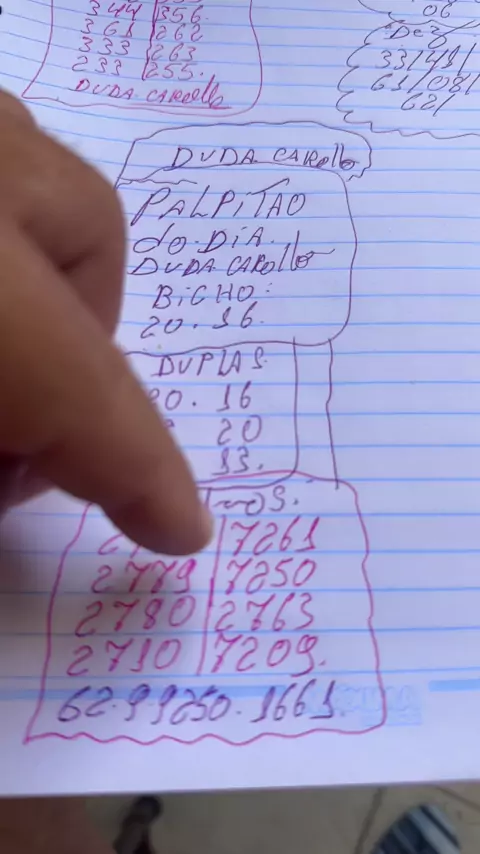 344 356.
361 262
333 263
233 255.
DUDA CAROllo
06
Dez
33/41/
61/08/
62/
DUDA CAROllo
PALPITAO
do. DIA.
DUDA CAROllo
BICHO:
20. 16.
DUPLAS.
20. 16
20
13.
7261
2779 7250
2780 2763
2710 7209.
62.99250.1661.